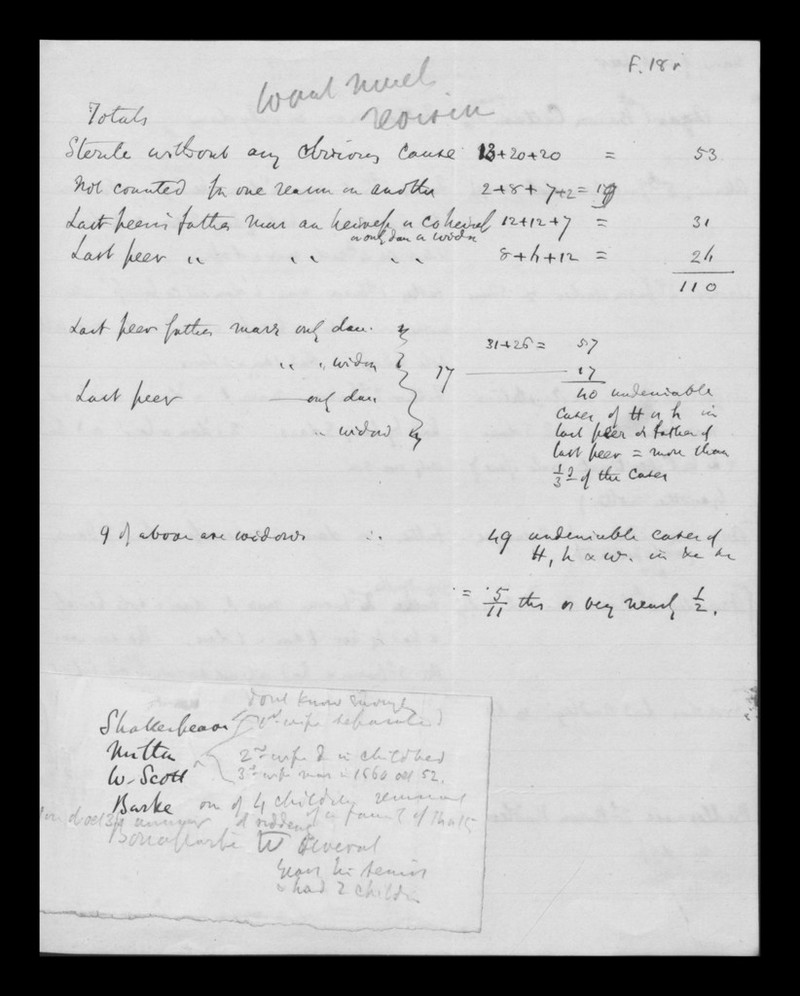 F. 18r
Want much
revision
Totals
Sterile without any obvious cause 13+20+20 = 53
Not counted for one reason or another 2+8+7+2=19
Last peer's father marr an heiress or coheiress 12+12+7 = 31
or only dau or widow
Last peer " " " " " 8+6+12 = 26
110
Last peer father marr only dau.
31+26= 57
" " widow
17 17
Last peer — only dau
40 undeniable
cases of H or h in
" widow
last peer or father of
last peer = more than
1/3 of the cases
9 of above are widows ∴ 49 undeniable cases of
H, h or w. in &c &c
= 5/11 ths or very nearly 1/2.
dont know enough
Shakespeare
wife separated
Milton
2nd wife d in childbed
W. Scott
3rd wife marr in 1660 aet 52.
Burke one of 4 children remained
of a family of
Bonaparte W several
years his senior
& had 2 children